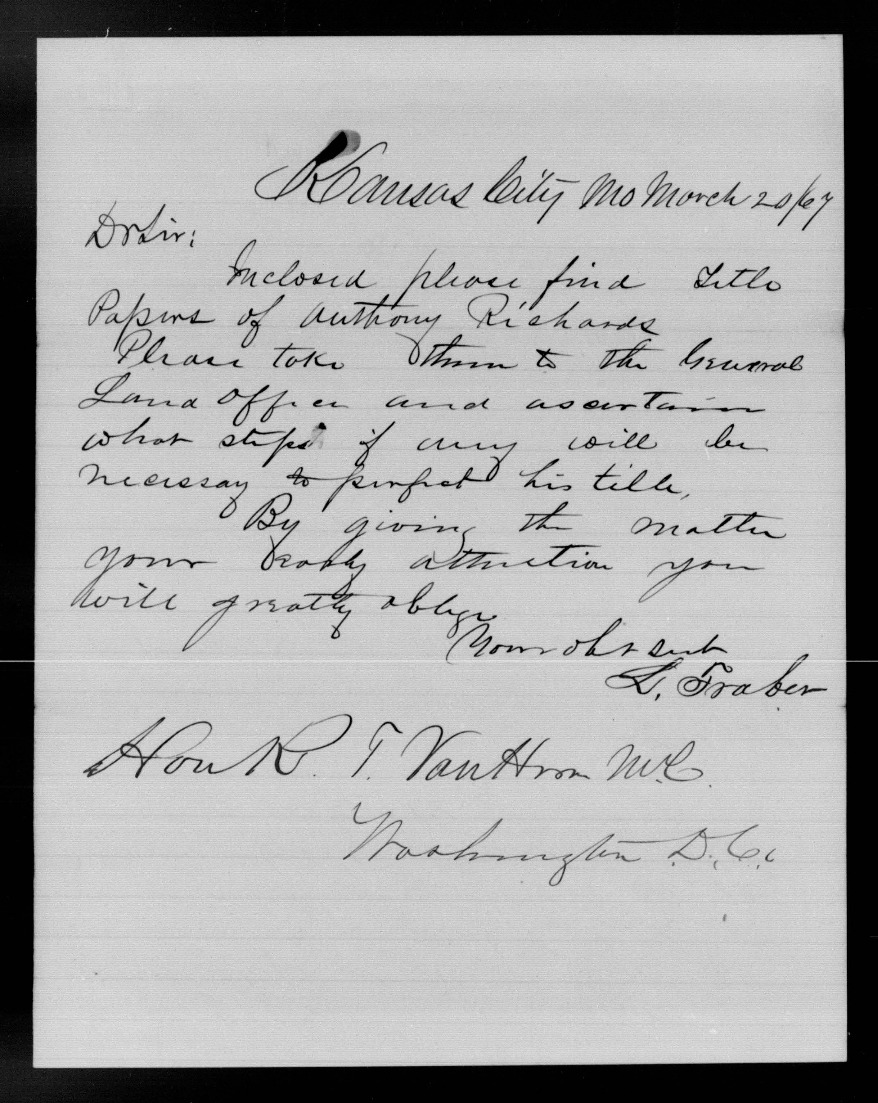 Kansas City Mo March 20/67
Dr Sir:
Inclosed please find title
Papers of Anthony Richards
Please take them to the General
Land Office and ascertain
what steps if any will be
necessay to perfect his title,
By giving the matter
your early attention you
will greatly oblige
Your obt servt
L. Traber
Hon R. T. Van Horn M.C.
Washington D.C.